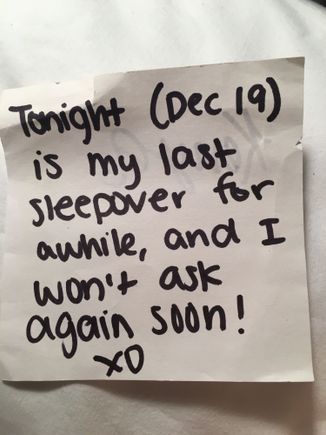 Tonight (Dec 19)
is my last
sleepover for
awhile, and I
won't ask
again soon!
XO